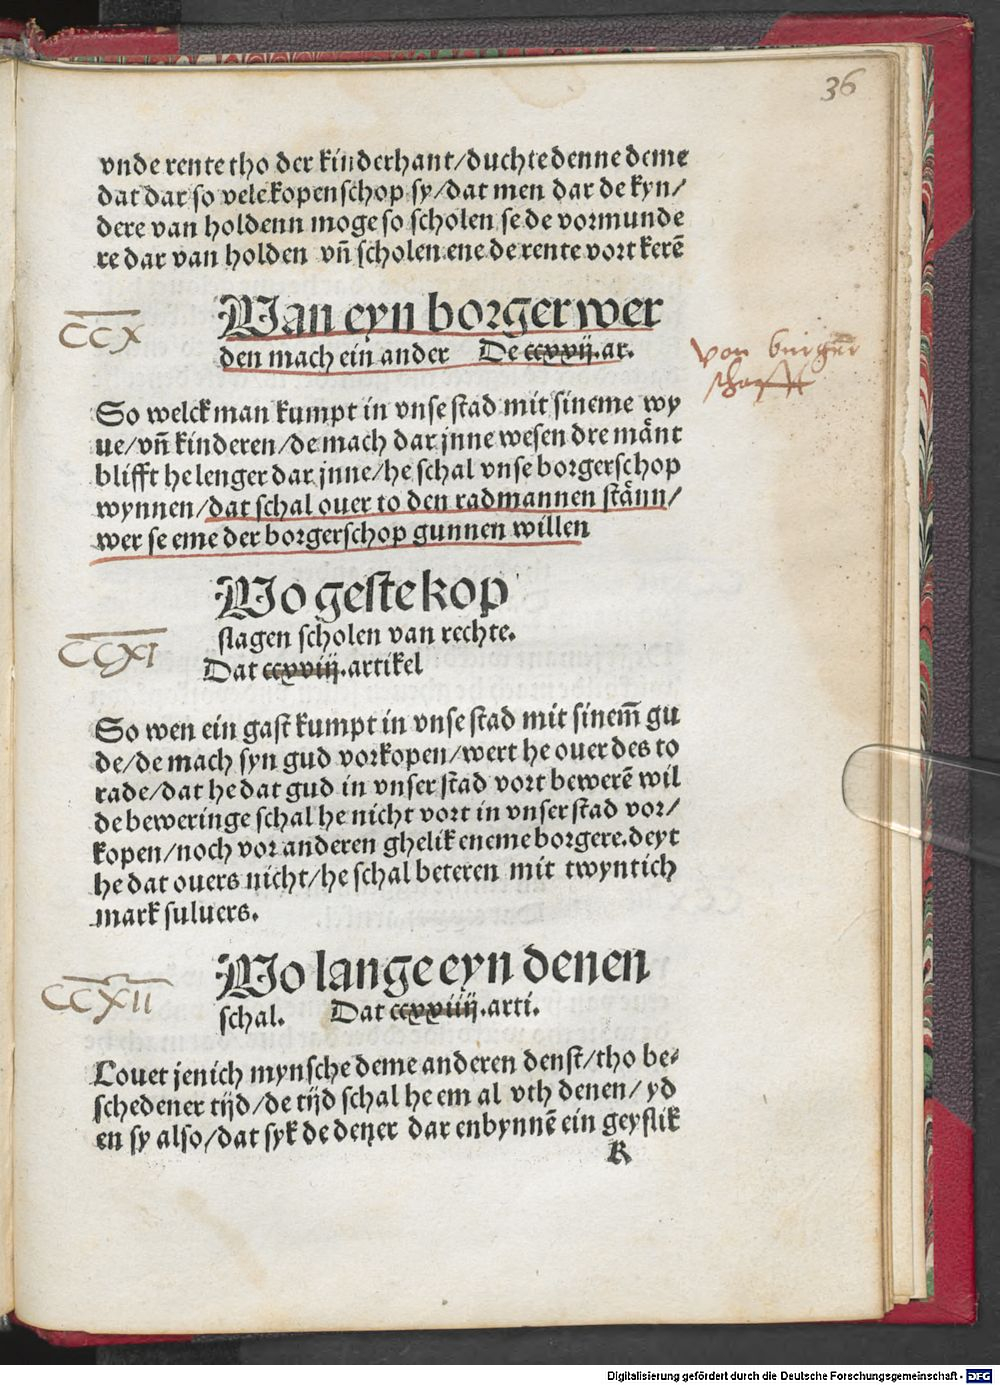 36
vnde rente tho der kinderhant/duchte denne deme
dat dar so vele kopenschop sy/dat men dar de kyn/
dere van holdenn moge so scholen se de vormunde
re dar van holden vñ scholen ene de rente vort kerē
CCX
Wan eyn borger wer
den mach ein ander De ccxvij.ar.
von burger
schafft
So welck man kumpt in vnse stad mit sineme wy
ue/vñ kinderen/de mach dar jnne wesen dre mänt
blifft he lenger dar jnne/he schal vnse borgerschop
wynnen/dat schal ouer to den radmannen stänn/
wer se eme der borgerschop gunnen willen
CCXI
Wo geste kop
slagen scholen van rechte.
Dat ccxviij.artikel
So wen ein gast kumpt in vnse stad mit sinem̄ gu
de/de mach syn gud vorkopen/wert he ouer des to
rade/dat he dat gud in vnser stad vort bewerē wil
de beweringe schal he nicht vort in vnser stad vor/
kopen/noch vor anderen ghelik eneme borgere.deyt
he dat ouers nicht/he schal beteren mit twyntich
mark suluers.
CCXII
Wo lange eyn denen
schal. Dat arti.
Louet jenich mynsche deme anderen denst/tho be-
schedener tijd/de tijd schal he em al vth denen/ yd
en sy also/dat syk de dener dar enbynnē ein geystlik
K
Digitalisierung gefördert durch die Deutsche Forschungsgemeinschaft - DFG